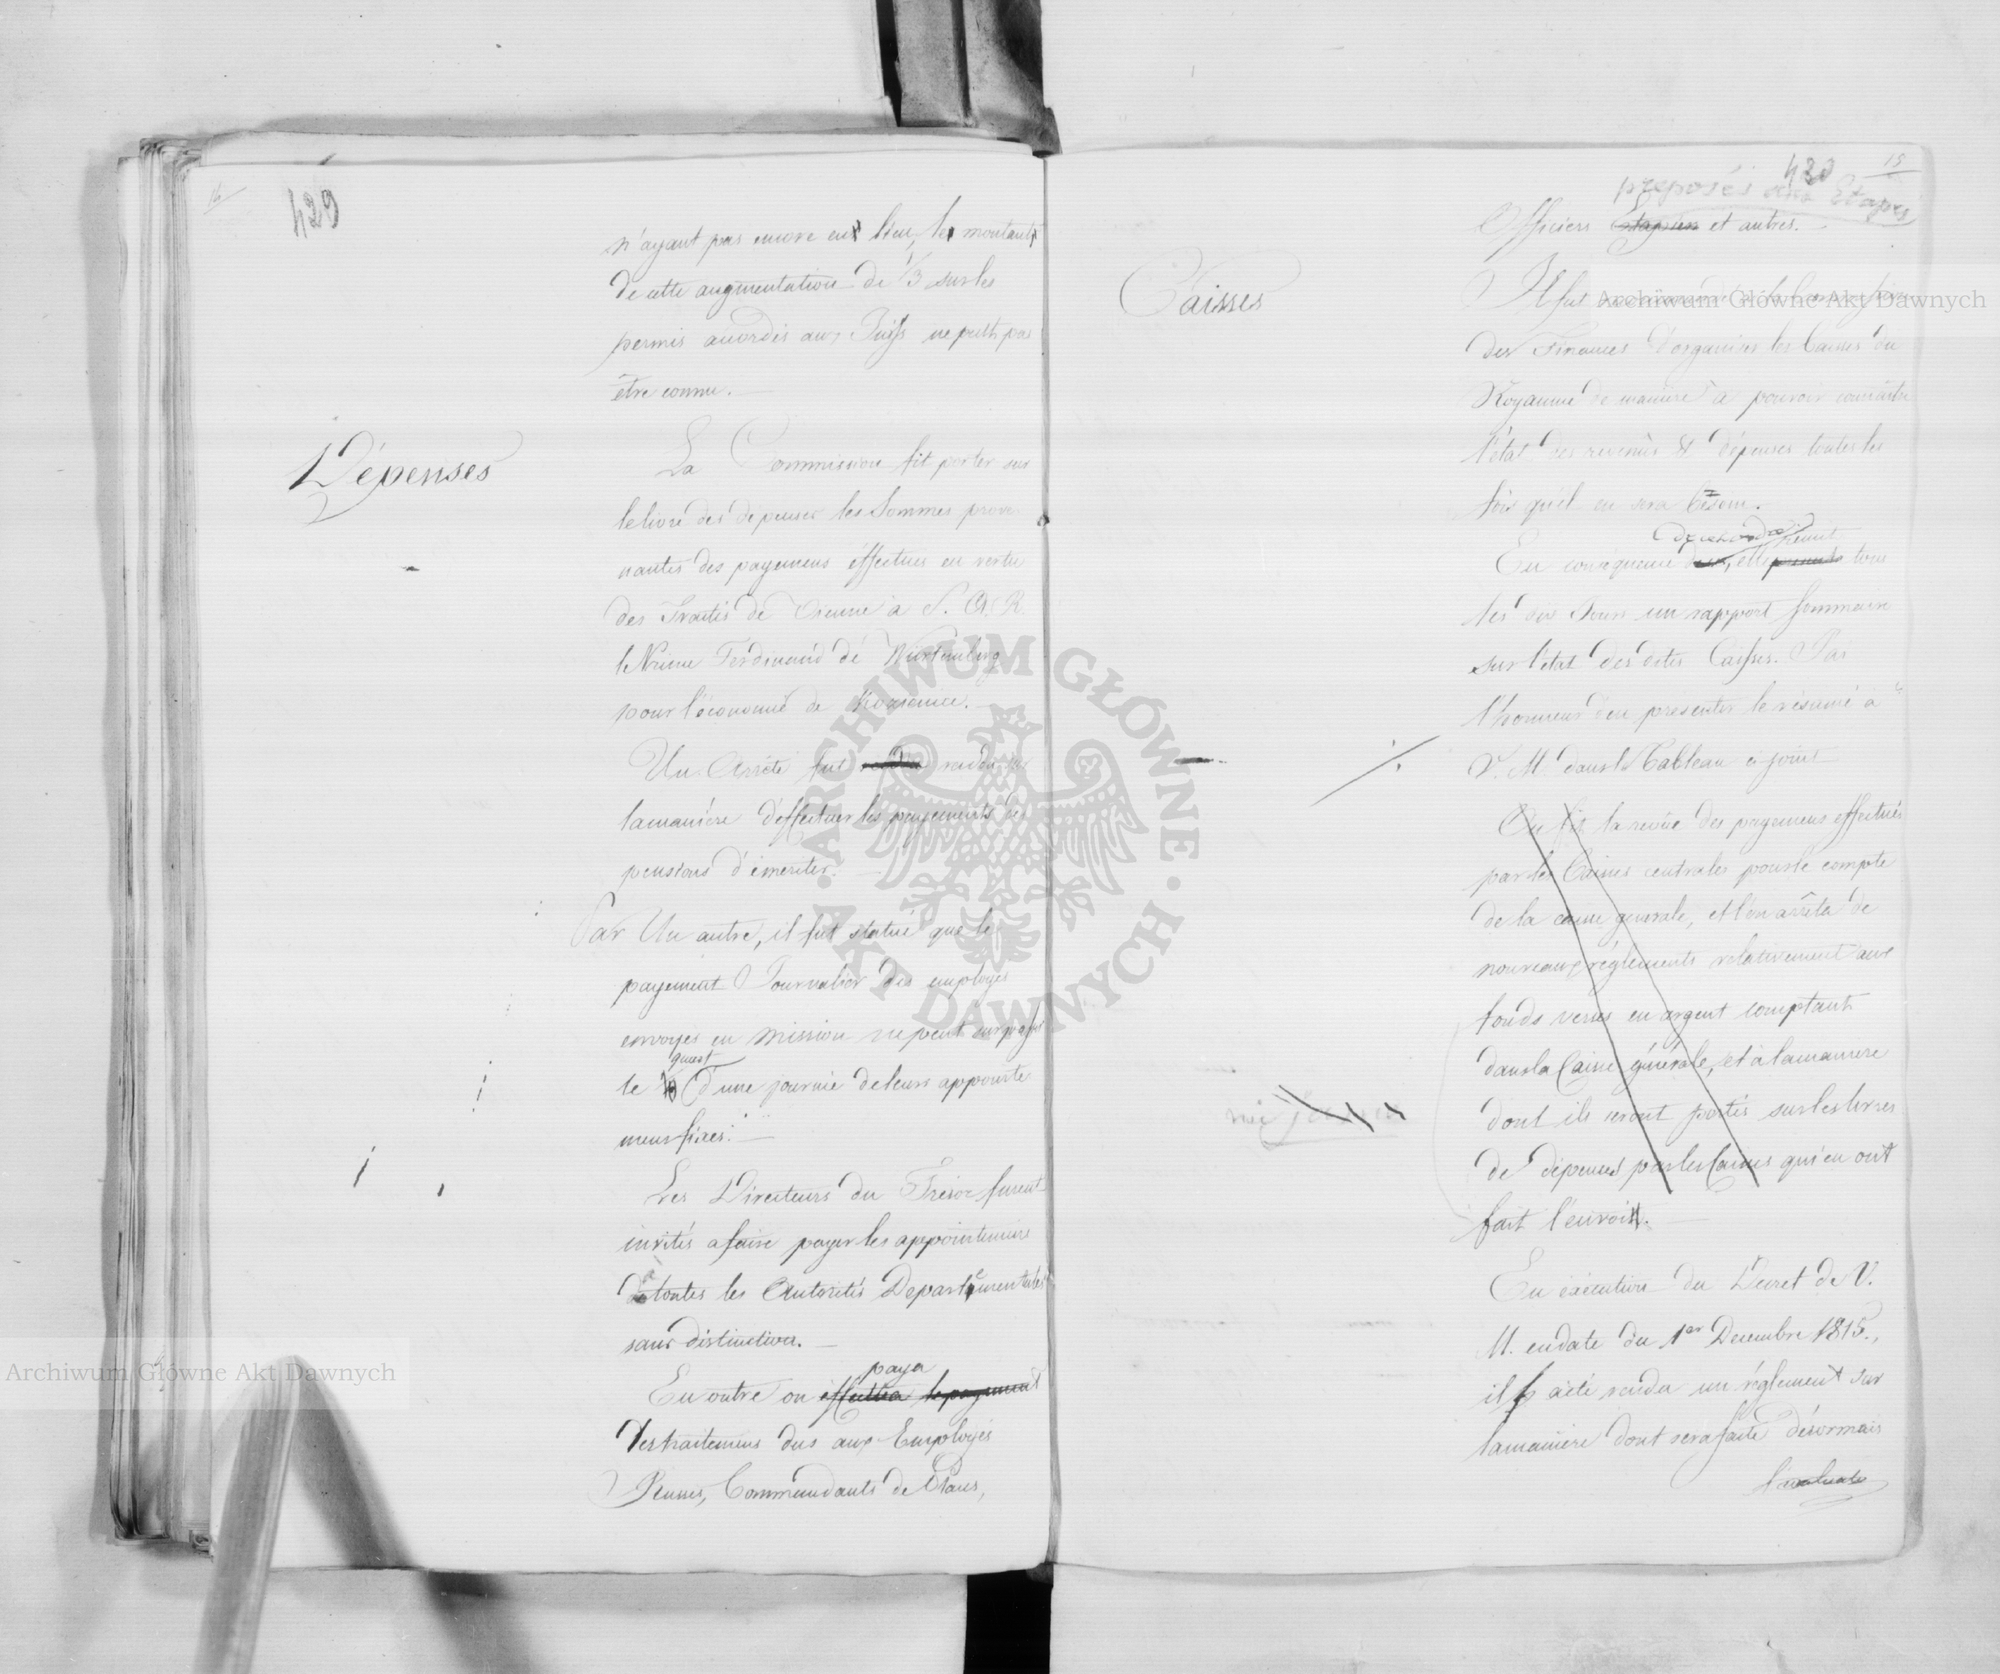 16
429
n'ayant pas encore eu lieu, le montant
de cette augmentation de 1/3 sur les
permis accordés aux Juifs ne peut pas
être connu. —
Dépenses
La Commission fit porter sur
le livre des dépenses les Sommes prove-
nantes des payemens éffectues en vertu
des Traités de Vienne à S. A. R.
le Prince Ferdinand de Würtemberg
pour l'économie de
Un Arrêté fut rendu sur
la manière d'effectuer les payements des
pensions d'émerites. —
Par Un autre, il fut statué que le
payement Journalier des employés
envoyés en mission ne peut surpasser
le quart d'une journée de leurs appointe
mens fixes. —
Les Directeurs du Trésor furent
invités a faire payer les appointemens
à toutes les Autorités Departementales
sans distinction. —
paya
En outre on effectua le payement
les traitemens dus aux Employés
Russes, Commandants de Places,
15
420
préposés aux Etapes
Officiers et autres. —
Caisses
Il fut
des Finances d'organiser les Caisses du
Royaume de manière à pouvoir connaître
l'état des revenus & dépenses toutes les
fois qu'il en sera besoin.
En conséquence elle tous
les dix Jours un rapport Sommaire
sur l'état des dites Caisses. J'ai
l'honneur d'en présenter le résumé à
V. M. dans le Tableau ci-joint
On fit la revüe des payemens effectués
par les Caisses centrales pour le compte
de la caisse generale, et l'on arrêta de
nouveaux réglements relativement aux
fonds versés en argent comptant
dans la Caisse générale, et à la manière
dont ils seront portés sur les livres
de dépenses par les Caisses qui en ont
fait l'envoi. —
nie
En éxécution du Decret de V.
M. en date du 1er Decembre 1815.,
il a été rendu un réglement sur
la manière dont sera faite désormais
Archiwum Główne Akt Dawnych
Archiwum Główne Akt Dawnych
ARCHIWUM GŁÓWNE AKT DAWNYCH